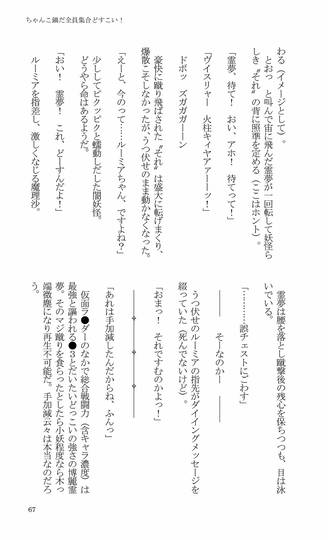 ちゃんこ鍋だ全員集合どすこい！
わる（イメージとして）。
とおっ　と叫んで宙に飛んだ霊夢が一回転して妖怪ら
しき〝それ〟の背に照準を定める（ここはホント）。
「霊夢、待て！　おい、アホ！　待てって！」
「ヴイスリャー　火柱キィヤアァーーッ！」
ドボッ　ズガガガーーン
豪快に蹴り飛ばされた〝それ〟は盛大に転げまくり、
爆散こそしなかったが、うつ伏せのまま動かなくなった。
「えーと、今のって……ルーミアちゃん、ですよね？」
少ししてピクッピクと蠕動しだした闇妖怪。
どうやら命はあるようだ。
「おい！　霊夢！　これ、どーすんだよ！」
ルーミアを指差し、激しくなじる魔理沙。
霊夢は腰を落とし蹴撃後の残心を保ちつつも、目は泳
いでいる。
「…………誤チェストにごわす」
―――　そーなのかー　―――
うつ伏せのルーミアの指先がダイイングメッセージを
綴っていた（死んでないけど）。
「おまっ！　それですむのかよっ！」
「あれは手加減したんだからね、ふんっ」
仮面ラ●ダーのなかで総合戦闘力（含キャラ濃度）は
最強と謳われる●３とだいたいどっこいの強さの博麗霊
夢。そのマジ蹴りを食らったとしたら小妖程度なら木っ
端微塵になり再生不可能だ。手加減云々は本当なのだろ
う。
67